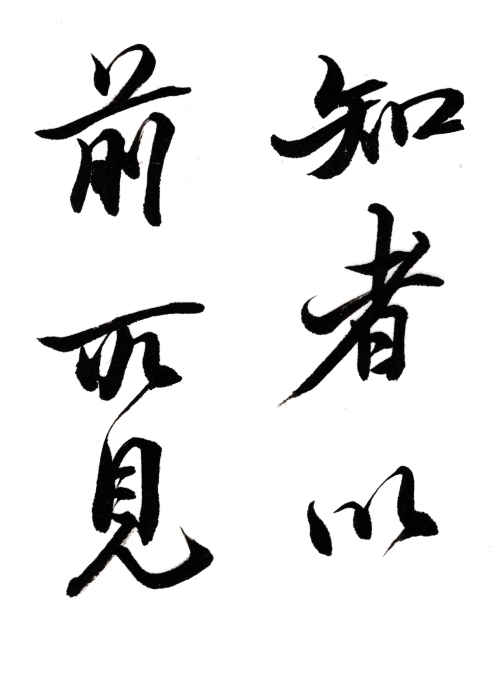 知者以
前所見